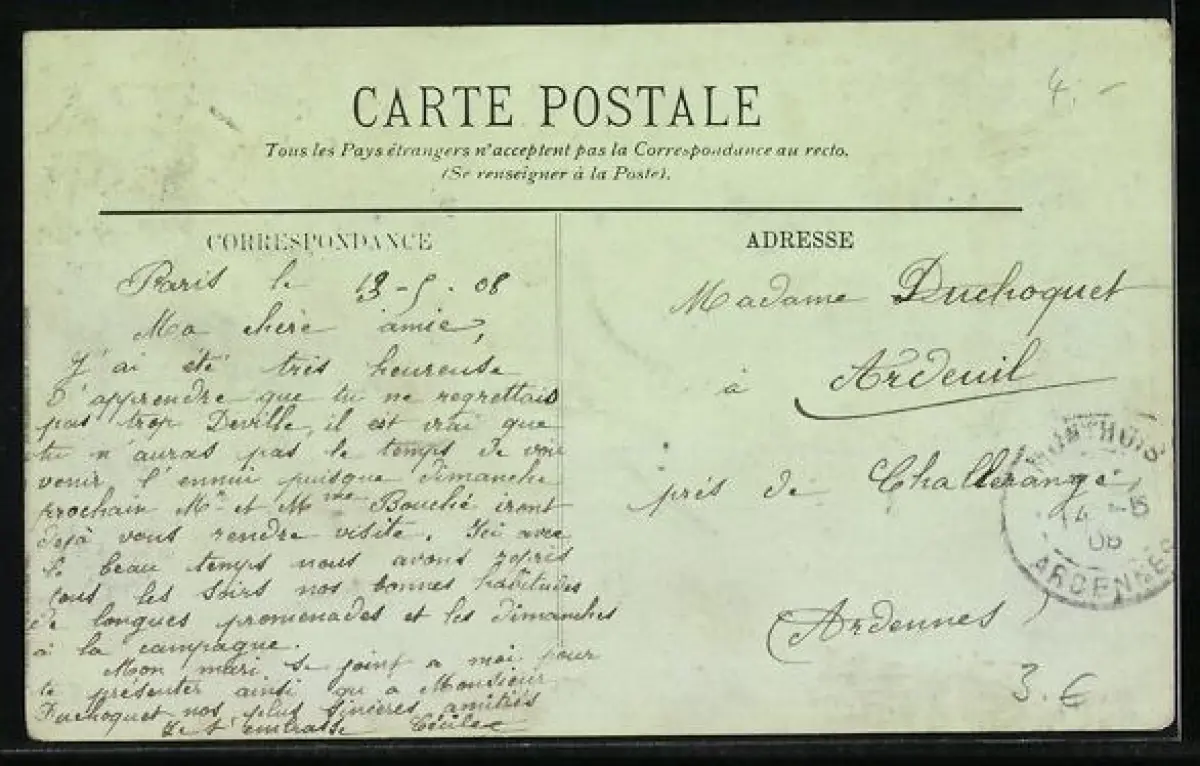 4. -
CARTE POSTALE
Tous les Pays étrangers n'acceptent pas la Correspondance au recto.
(Se renseigner à la Poste).
CORRESPONDANCE
Paris le 13-5-08
Ma chère amie,
J'ai été très heureuse
d'apprendre que tu ne regrettais
pas trop Deville, il est vrai que
tu n'auras pas le temps de voir
venir l'ennui puisque dimanche
prochain Mr et Mme Bouché iront
déjà vous rendre visite. Ici avec
le beau temps nous avons repris
tous les soirs nos bonnes habitudes
de longues promenades et les dimanches
à la campagne.
Mon mari se joint a moi pour
te présenter ainsi qu'a Monsieur
Duchoquet nos plus sincères amitiés
Je t'embrasse Cécile
ADRESSE
Madame Duchoquet
à Ardeuil
près de Challerange
(Ardennes)
MONTHOIS
14 -5
08
ARDENNES
3.€